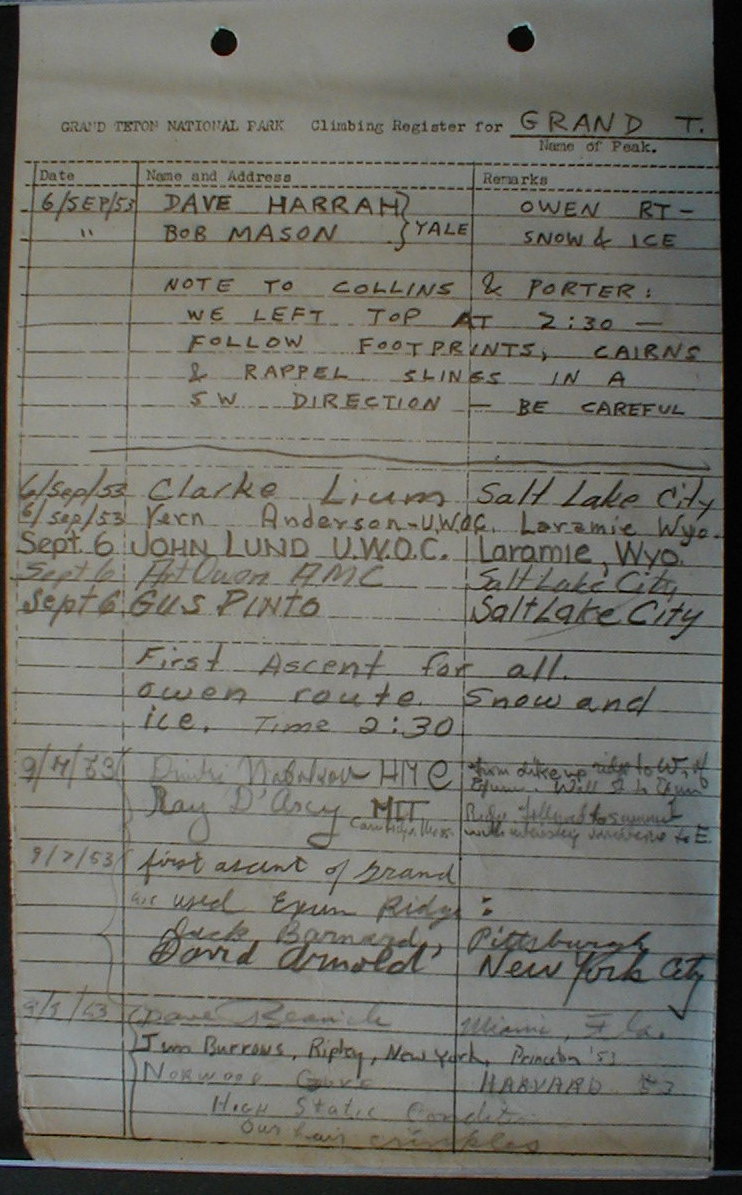 GRAND TETON NATIONAL PARK Climbing Register for GRAND T.
Name of Peak.
Date Name and Address Remarks
6/SEP/53 DAVE HARRAH OWEN RT -
" BOB MASON } YALE SNOW & ICE
NOTE TO COLLINS & PORTER:
WE LEFT TOP AT 2:30 —
FOLLOW FOOTPRINTS, CAIRNS
& RAPPEL SLINGS IN A
SW DIRECTION - BE CAREFUL
6/Sep/53 Clarke Lium Salt Lake City
6/sep/53 Vern Anderson-U.W.O.C. Laramie Wyo.
Sept. 6 JOHN LUND U.W.O.C. Laramie, Wyo.
Sept 6 Art Owen AMC Salt Lake City
Sept 6 GUS PINTO Salt Lake City
First Ascent for all.
owen route. Snow and
ice. Time 2:30
9/7/53 Dmitri Nabokov HMC from dike up ridge to W. of
Exum.
Ray D'Arcy MIT Ridge followed to summit
Cambridge Mass. with interesting to E.
9/7/53 first ascent of Grand
used Exum Ridge:
Jack Barnard, Pittsburgh
David Arnold New York City
53 Dave Miami, Fla.
Jim Burrows, Ripley, New York, Princeton '53
NORWOOD HARVARD 53
High Static Condition
Our hair crinkles